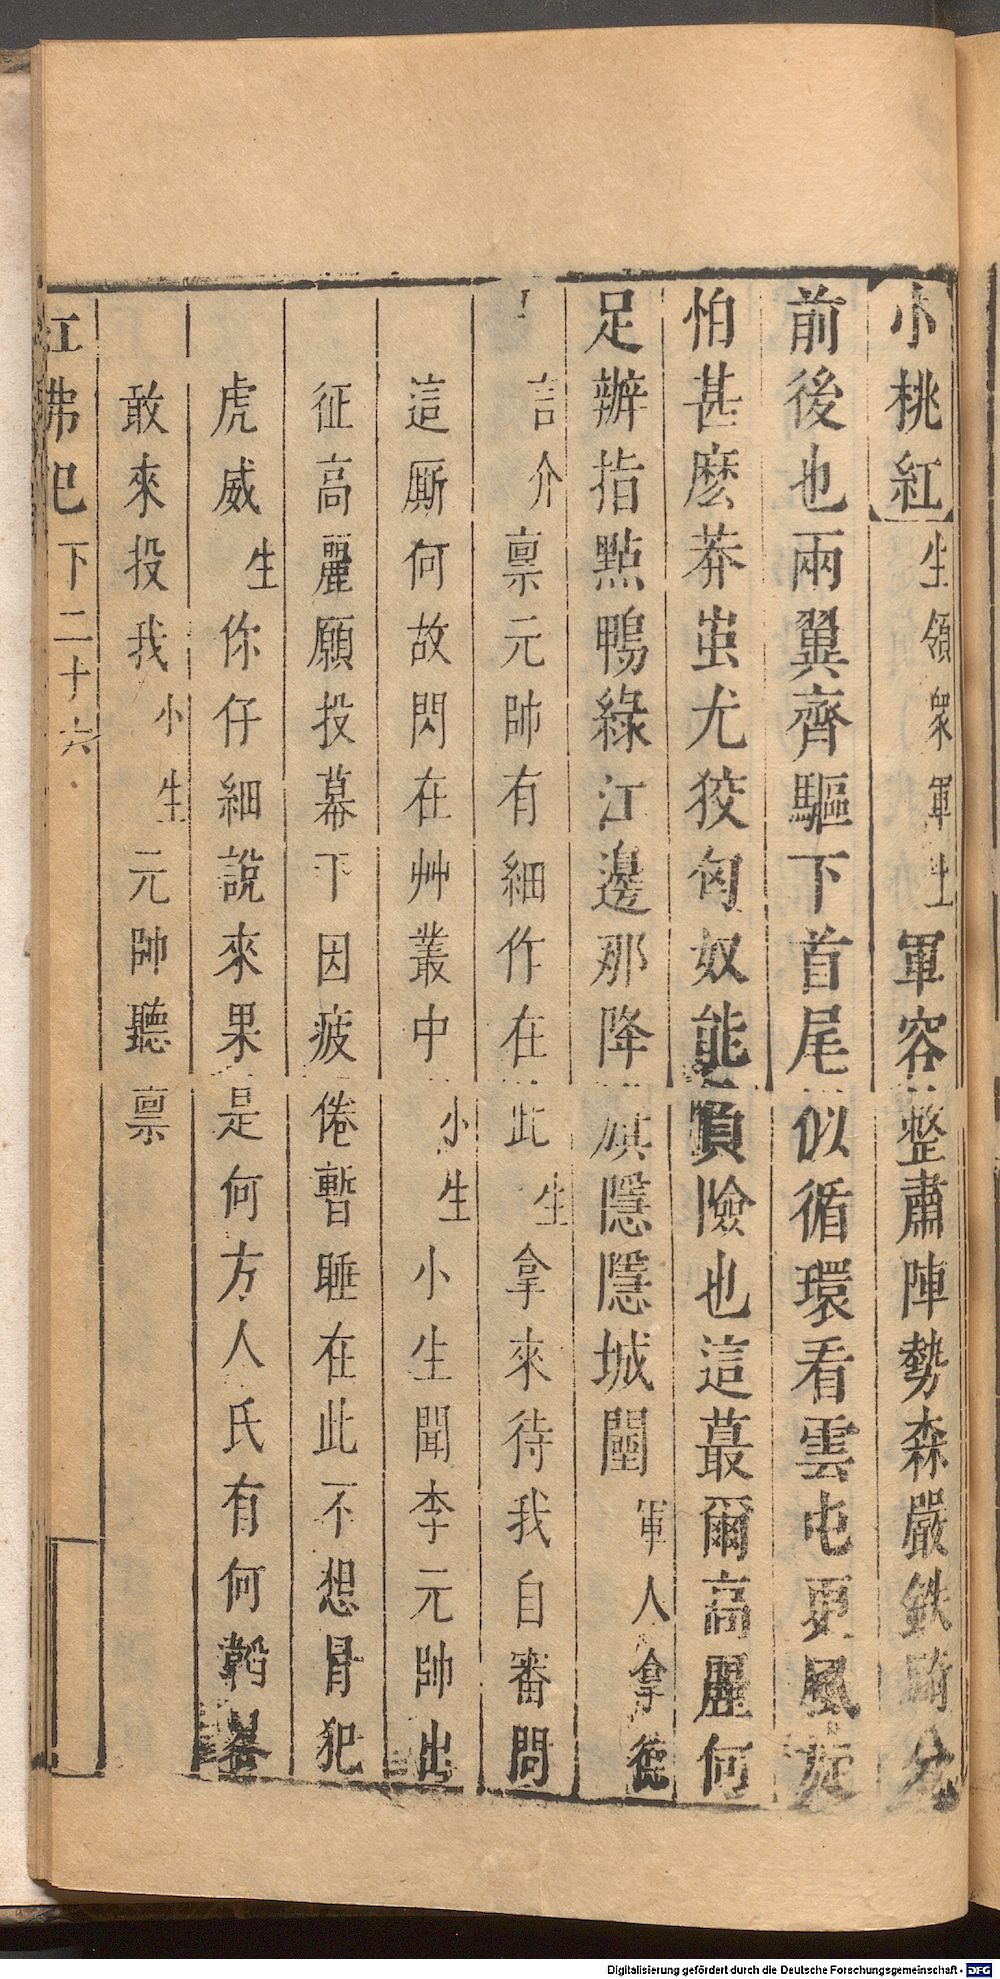 小桃紅生領眾軍上軍容整肅陣勢森嚴鉄騎分
前後也兩翼齊驅下首尾似循環看雲屯更風旋
怕甚麽莽蚩尤狡匈奴能負險也這蕞爾高麗何
足辦指點鴨綠江邊那降旗隱隱城闉軍人拿德
言介稟元帥有細作在此生拿來待我自審問
這厮何故閃在艸叢中小生小生聞李元帥出
征高麗願投幕下因疲倦暫睡在此不想冐犯
虎威生你仔細說來果是何方人氏有何韜畧
敢來投我小生元帥聽稟
紅弗記下二十六
Digitalisierung gefördert durch die Deutsche Forschungsgemeinschaft - DFG